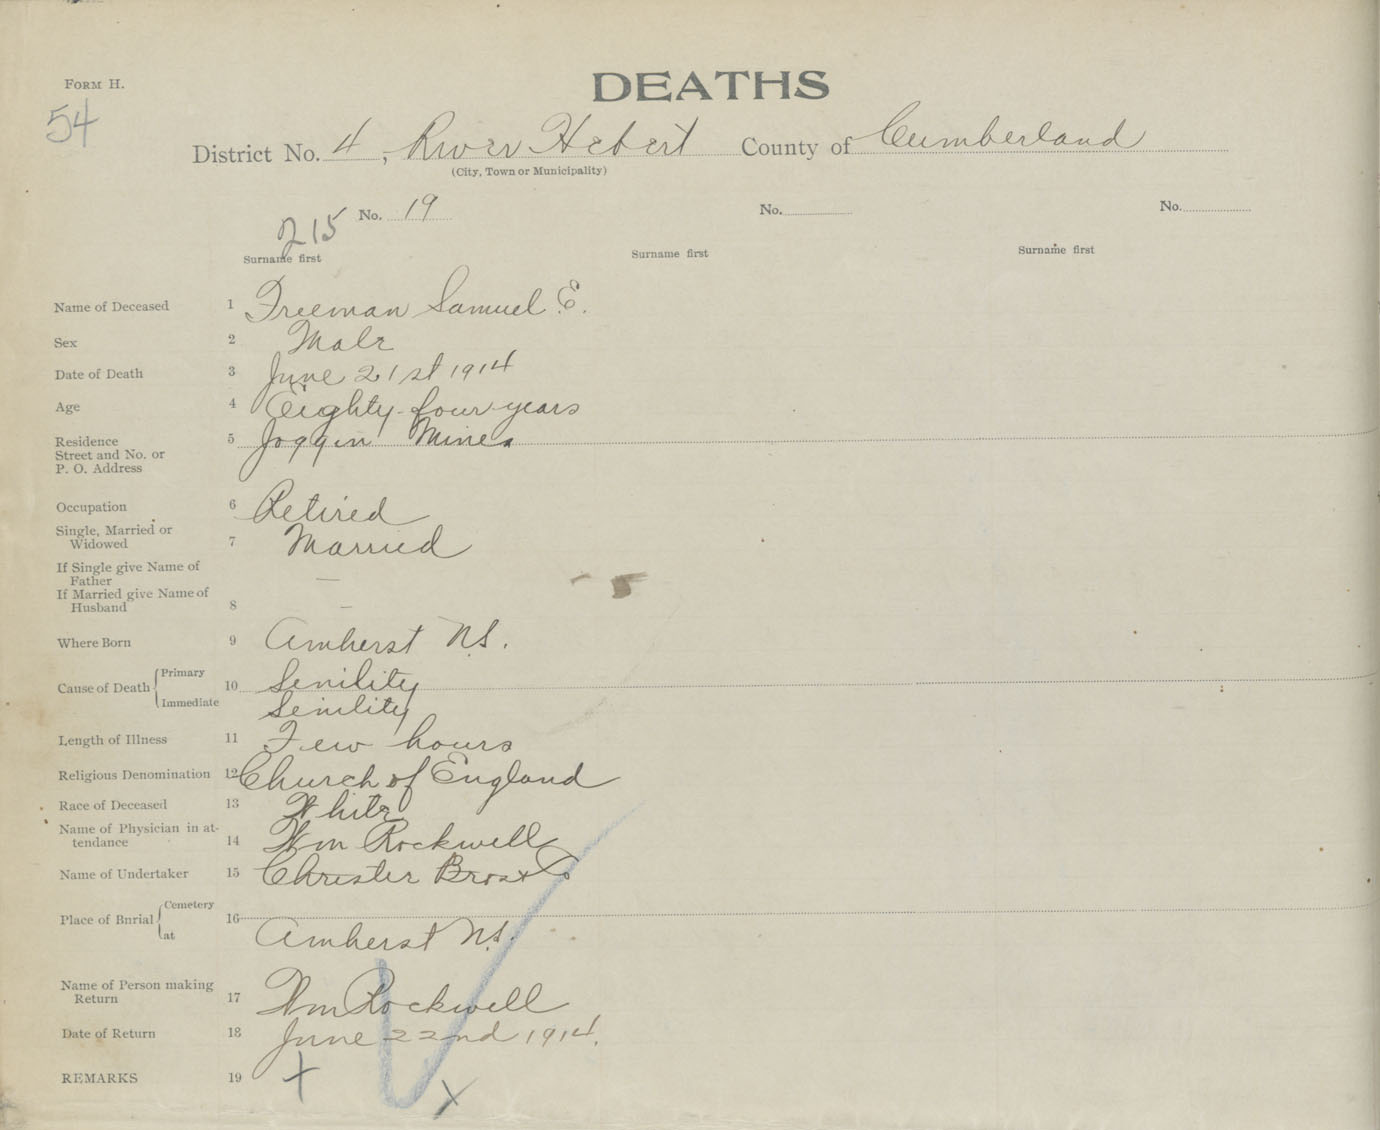 FORM H.
54
DEATHS
District No. 4, River Hebert County of Cumberland
(City, Town or Municipality)
No. 19 No. No.
215
Surname first Surname first Surname first
Name of Deceased 1 Freeman Samuel E.
Sex 2 Male
Date of Death 3 June 21st 1914
Age 4 Eighty-four years
Residence 5 Joggin Mines
Street and No. or
P. O. Address
Occupation 6 Retired
Single, Married or
Widowed 7 Married
If Single give Name of
Father —
If Married give Name of
Husband 8 —
Where Born 9 Amherst N.S.
Cause of Death Primary 10 Senility
Immediate Senility
Length of Illness 11 Few hours
Religious Denomination 12 Church of England
Race of Deceased 13 White
Name of Physician in at-
tendance 14 Wm Rockwell
Name of Undertaker 15 Christer Bros & Co
Place of Bnrial Cemetery 16
at Amherst N.S.
Name of Person making
Return 17 Wm Rockwell
Date of Return 18 June 22nd 1914.
REMARKS 19 + x